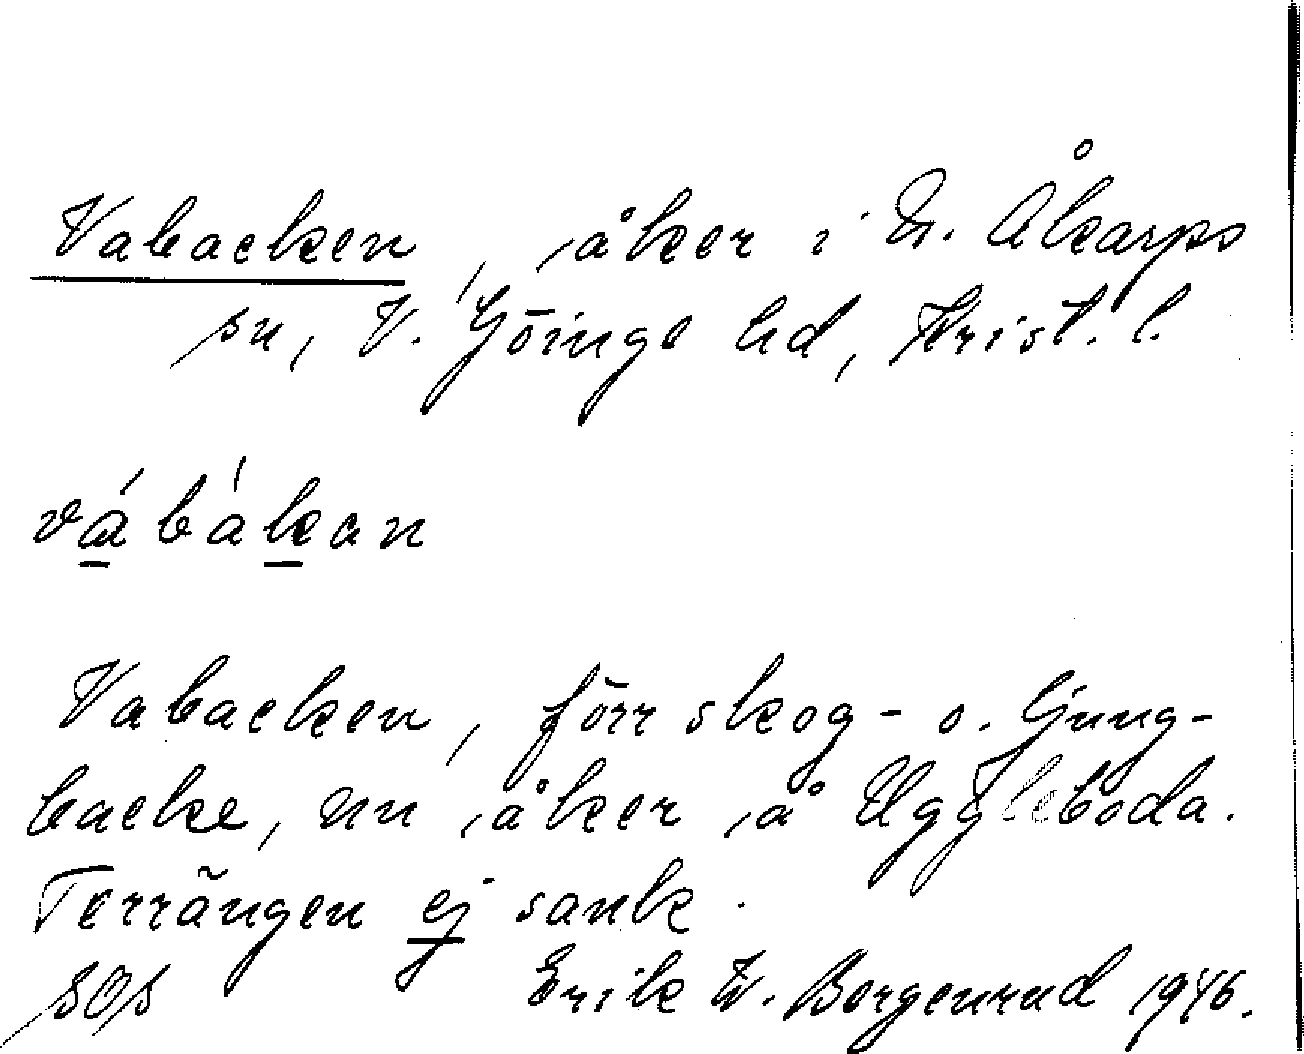 Vabacken, åker i N. Åkarps
sn, V. Göinge hd, Krist. l.
vábákan
Vabacken, förr skog- o. ljung-
backe, nu åker å Uggleboda.
Terrängen ej sank.
SOS Erik W. Borgenrud 1946.